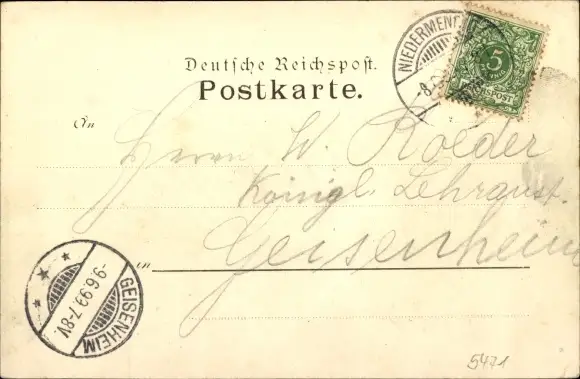 Deutsche Reichspost.
Postkarte.
NIEDERMEND
5
REICHSPOST
An
Herrn W. Roeder
Königl. Lehranst.
Geisenheim
in
GEISENHEIM
9.6.99.7-8V.
5471